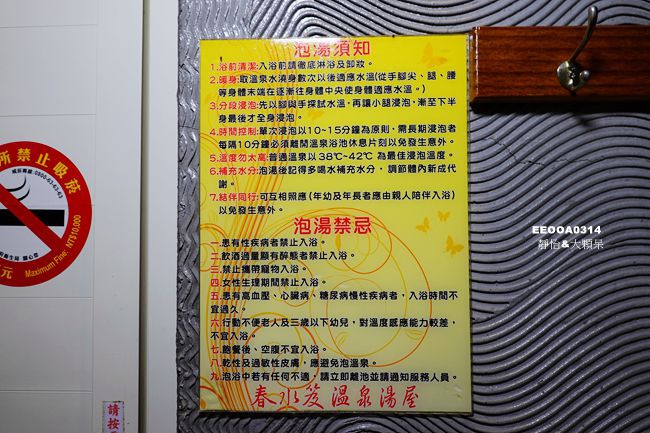 泡湯須知
1.浴前清潔:入浴前請徹底淋浴及卸妝。
2.暖身:取溫泉水澆身數次以後適應水溫(從手腳尖、腿、腰
等身體末端在逐漸往身體中央使身體適應水溫。)
3.分段浸泡:先以腳與手探試水溫,再讓小腿浸泡,漸至下半
身最後才全身浸泡。
4.時間控制:單次浸泡以10~15分鐘為原則,需長期浸泡者
每隔10分鐘必須離開溫泉浴池休息片刻以免發生意外。
5.溫度勿太高:普通溫泉以38℃~42℃ 為最佳浸泡溫度。
6.補充水分:泡湯後記得多喝水補充水分,調節體內新成代
謝。
7.結伴同行:可互相照應(年幼及年長者應由親人陪伴入浴)
以免發生意外。
泡湯禁忌
一.患有性疾病者禁止入浴。
二.飲酒過量顯有醉態者禁止入浴。
三.禁止攜帶寵物入浴。
四.女性生理期間禁止入浴。
五.患有高血壓、心臟病、糖尿病慢性疾病者,入浴時間不
宜過久。
六.行動不便老人及三歲以下幼兒,對溫度感應能力較差,
不宜入浴。
七.飽餐後、空腹不宜入浴。
八.乾性及過敏性皮膚,應避免泡溫泉。
九.泡浴中若有任何不適,請立即離池並請通知服務人員。
春水笈溫泉湯屋
所禁止吸菸
0800-63-63-63
NT$10,000
Maximum Fine:
元
請按
EEOOA0314
靜怡&大顆呆